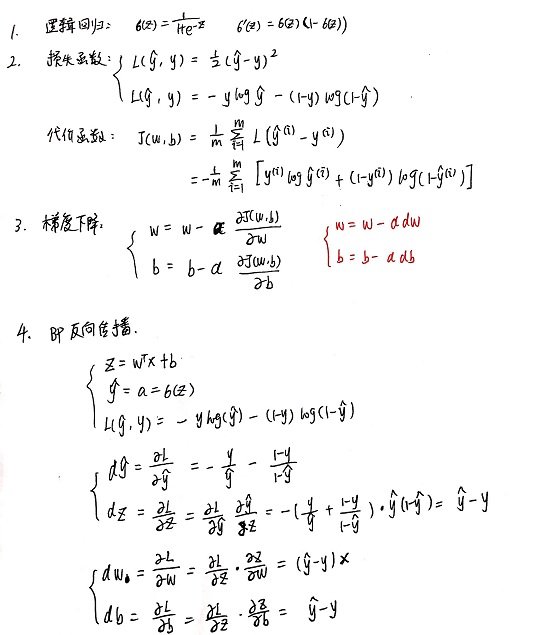 1. 逻辑回归: σ(z) = 1/(1+e^-z) σ'(z) = σ(z)(1-σ(z))
2. 损失函数: { L(ŷ, y) = 1/2 (ŷ-y)²
L(ŷ, y) = - y log ŷ - (1-y) log(1-ŷ)
代价函数: J(w,b) = 1/m Σ_{i=1}^{m} L(ŷ^(i) - y^(i))
= -1/m Σ_{i=1}^{m} [y^(i) log ŷ^(i) + (1-y^(i)) log(1-ŷ^(i))]
3. 梯度下降: { w = w - α ∂J(w,b)/∂w { w = w - α dw
b = b - α ∂J(w,b)/∂b b = b - α db
4. BP 反向传播.
{ z = w^T x + b
ŷ = a = σ(z)
L(ŷ, y) = - y log(ŷ) - (1-y) log(1-ŷ)
{ dŷ = ∂L/∂ŷ = - y/ŷ - (1-y)/(1-ŷ)
dz = ∂L/∂z = ∂L/∂ŷ ∂ŷ/∂z = -(y/ŷ + (1-y)/(1-ŷ)) · ŷ(1-ŷ) = ŷ - y
{ dw = ∂L/∂w = ∂L/∂z · ∂z/∂w = (ŷ-y) x
db = ∂L/∂b = ∂L/∂z · ∂z/∂b = ŷ-y